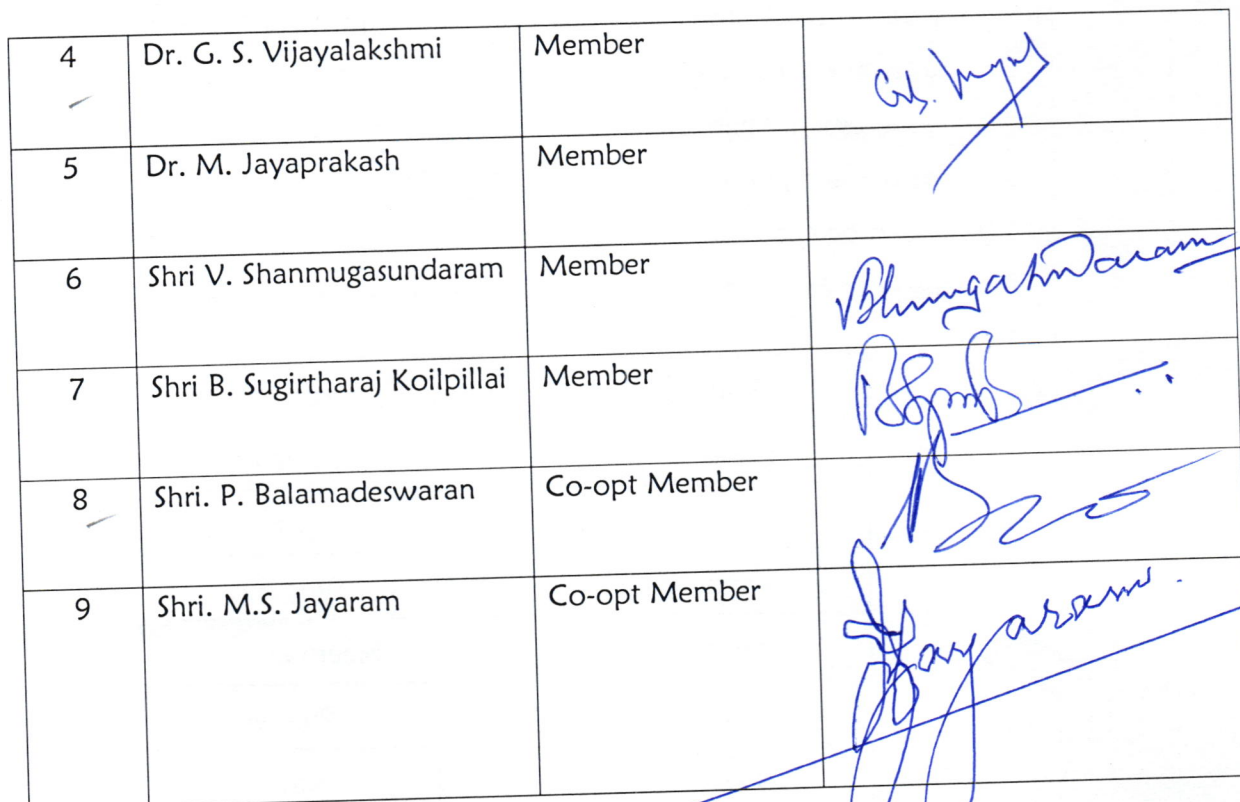 4 Dr. G. S. Vijayalakshmi Member
5 Dr. M. Jayaprakash Member
6 Shri V. Shanmugasundaram Member
7 Shri B. Sugirtharaj Koilpillai Member
8 Shri. P. Balamadeswaran Co-opt Member
9 Shri. M.S. Jayaram Co-opt Member Jayaram.